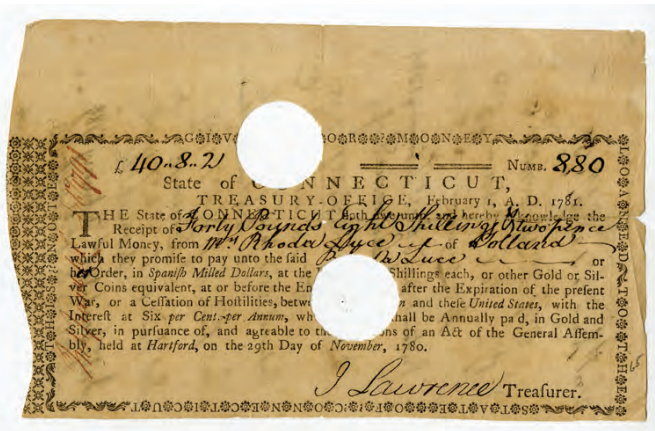 GIV OR MONEY
£ 40..8..2 NUMB. 880
State of CONNECTICUT,
TREASURY-OFFICE, February 1, A. D. 1781.
THE State of CONNECTICUT doth hereby acknowledge the
Receipt of Forty Pounds eight Shillings & two pence
Lawful Money, from Mrs Rhoda Luce of Bolland
which they promise to pay unto the said Luce or
her Order, in Spanish Milled Dollars, at the Shillings each, or other Gold or Sil-
ver Coins equivalent, at or before the En after the Expiration of the present
War, or a Cessation of Hostilities, betw n and these United States, with the
Interest at Six per Cent. per Annum, wh shall be Annually paid, in Gold and
Silver, in pursuance of, and agreable to th ons of an Act of the General Assem-
bly, held at Hartford, on the 29th Day of November, 1780.
J Lawrence Treasurer.
LOANED TO THE
STATE OF CONNECTICUT